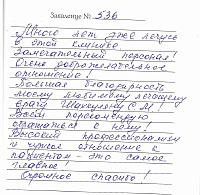 Заявление № 536
Много лет уже лечусь
в этой клинике.
Замечательный персонал!
Очень доброжелательное
отношение!
Большая благодарность
моему любимому лечащему
врачу С. М.!
Всем рекомендую
обращаться к нему!
Высокий профессионализм
и чуткое отношение с
пациентом - это самое
главное!
Огромное спасибо!